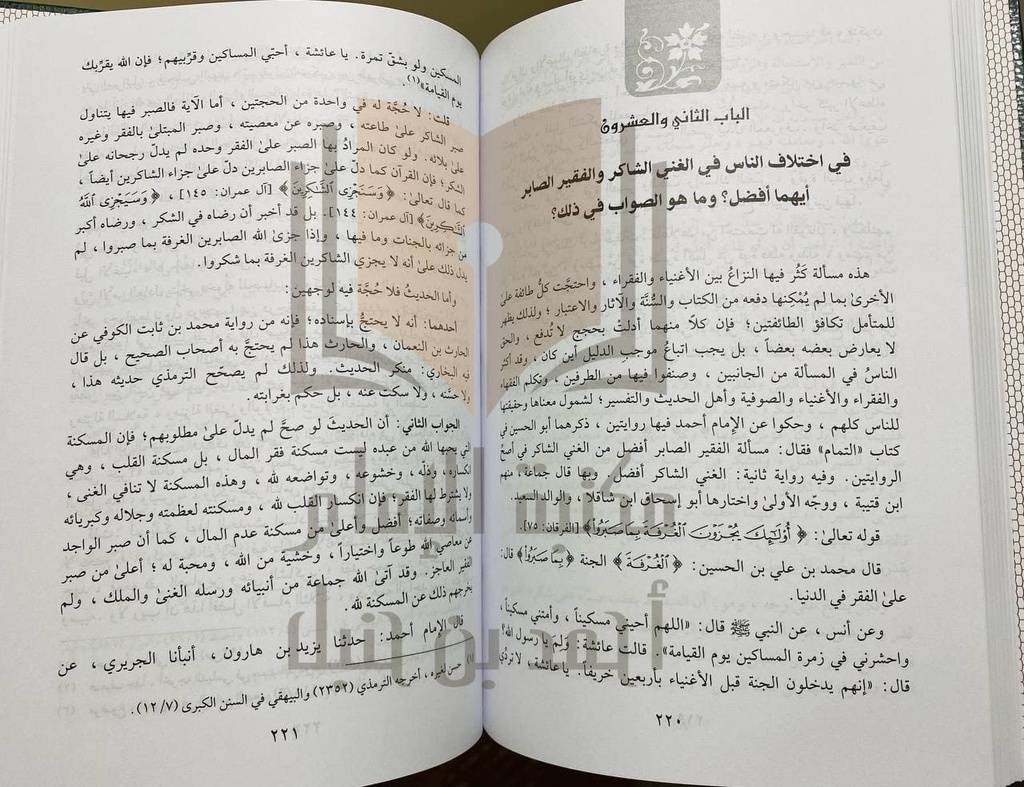 الباب الثاني والعشرون
في اختلاف الناس في الغني الشاكر والفقير الصابر
أيهما أفضل؟ وما هو الصواب في ذلك؟
هذه مسألة كَثُر فيها النزاعُ بين الأغنياء والفقراء ، واحتجَّت كلُّ طائفة علىٰ
الأخرىٰ بما لم يُمْكِنها دفعه من الكتاب والسُّنَّة والآثار والاعتبار ؛ ولذلك يظهر
للمتأمل تكافؤ الطائفتين؛ فإن كلاً منهما أدلتْ بحجج لا تُدفع ، والحق
لا يعارض بعضه بعضاً ، بل يجب اتباعُ موجب الدليل أين كان ، وقد أكثر
الناسُ في المسألة من الجانبين ، وصنفوا فيها من الطرفين ، وتكلم الفقهاء
والفقراء والأغنياء والصوفية وأهل الحديث والتفسير؛ لشمول معناها وحقيقتها
للناس كلهم ، وحكوا عن الإمام أحمد فيها روايتين ، ذكرهما أبو الحسين في
كتاب «التمام» فقال: مسألة الفقير الصابر أفضل من الغني الشاكر في أصحِّ
الروايتين. وفيه رواية ثانية: الغني الشاكر أفضل ، وبها قال جماعة ، منهم
ابن قتيبة ، ووجّه الأولىٰ واختارها أبو إسحاق ابن شاقلا ، والوالد السعيد.
قوله تعالىٰ: ﴿ أُوْلَٰٓئِكَ يُجْزَوْنَ الْغُرْفَةَ بِمَا صَبَرُواْ﴾ [الفرقان: ٧٥].
قال محمد بن علي بن الحسين: ﴿ الْغُرْفَةَ ﴾ الجنة ﴿بِمَا صَبَرُواْ﴾ قال:
علىٰ الفقر في الدنيا.
وعن أنس ، عن النبي ﷺ قال: «اللهم أحيني مسكيناً ، وأمتني مسكيناً ،
واحشرني في زمرة المساكين يوم القيامة». قالت عائشة: ولم يا رسول الله؟
قال: «إنهم يدخلون الجنة قبل الأغنياء بأربعين خريفاً. يا عائشة ، لا تردِّي
٢٢٠
المسكين ولو بشقِّ تمرة. يا عائشة ، أحبّي المساكين وقرِّبيهم؛ فإن الله يقربك
يوم القيامة»(١).
قلت: لا حُجَّة له في واحدة من الحجتين ، أما الآية فالصبر فيها يتناول
صبر الشاكر علىٰ طاعته ، وصبره عن معصيته ، وصبر المبتلىٰ بالفقر وغيره
علىٰ بلائه. ولو كان المرادُ بها الصبر علىٰ الفقر وحده لم يدلّ رجحانه علىٰ
الشكر؛ فإن القرآن كما دلّ علىٰ جزاء الصابرين دلّ علىٰ جزاء الشاكرين أيضاً ،
كما قال تعالىٰ: ﴿ وَسَنَجْزِي الشَّٰكِرِينَ ﴾ [آل عمران: ١٤٥] ، ﴿ وَسَيَجْزِي اللَّهُ
الشَّٰكِرِينَ﴾ [آل عمران: ١٤٤]. بل قد أخبر أن رضاه في الشكر ، ورضاه أكبر
من جزائه بالجنات وما فيها ، وإذا جزىٰ الله الصابرين الغرفة بما صبروا ، لم
يدل ذلك علىٰ أنه لا يجزي الشاكرين الغرفة بما شكروا.
وأما الحديثُ فلا حُجَّة فيه لوجهين:
أحدهما: أنه لا يحتجُّ بإسناده؛ فإنه من رواية محمد بن ثابت الكوفي عن
الحارث بن النعمان ، والحارث هذا لم يحتجَّ به أصحاب الصحيح ، بل قال
فيه البخاري: منكر الحديث. ولذلك لم يصحّح الترمذي حديثه هذا ،
ولا حسَّنه ، ولا سكت عنه ، بل حكم بغرابته.
الجواب الثاني: أن الحديثَ لو صحَّ لم يدلّ علىٰ مطلوبهم؛ فإن المسكنة
التي يحبها الله من عبده ليست مسكنة فقر المال ، بل مسكنة القلب ، وهي
انكساره ، وذلّه ، وخشوعه ، وتواضعه لله ، وهذه المسكنة لا تنافي الغنى ،
ولا يشترط لها الفقر؛ فإن انكسار القلب لله ، ومسكنته لعظمته وجلاله وكبريائه
وأسمائه وصفاته؛ أفضل وأعلىٰ من مسكنة عدم المال ، كما أن صبر الواجد
عن معاصي الله طوعاً واختياراً ، وخشية من الله ، ومحبة له ؛ أعلىٰ من صبر
الفقير العاجز. وقد آتىٰ الله جماعة من أنبيائه ورسله الغنىٰ والملك ، ولم
يخرجهم ذلك عن المسكنة لله.
قال الإمام أحمد: حدثنا يزيد بن هارون ، أنبأنا الجريري ، عن
(١) حسن لغيره ، أخرجه الترمذي (٢٣٥٢) والبيهقي في السنن الكبرى (٧/ ١٢).
٢٢١
مكتبة الإمام
أحمد بن حنبل